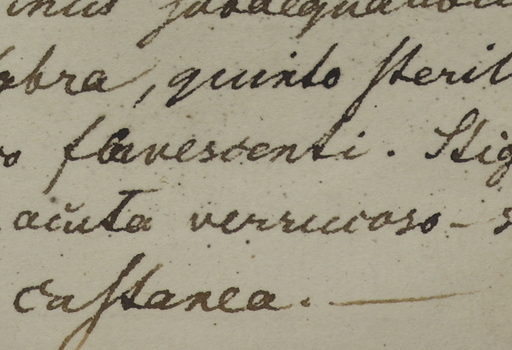 subaequal
abra, quinto steril
flavescenti. Stig
acuta verrucoso-s
castanea.